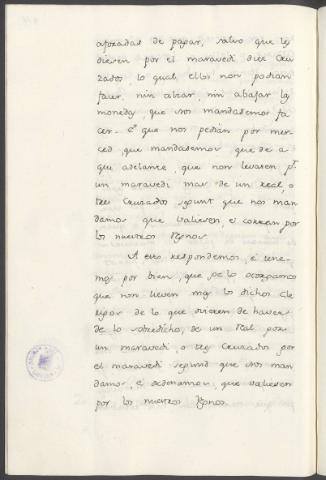 aforadas de pagar, salvo que les
diesen por el maravedi diez Cru
zados, lo qual ellos non podian
facer, nin alzar, nin abajar las
monedas, que nos mandasemos fa
cer. E que nos pedian por mer
ced, que mandasemos que de a
qui adelante, que non levasen pr.
un maravedi mas de un real, o
tres Cruzados segunt que nos man
damos que valiesen, e corran por
los nuestros Regnos.
A esto respondemos, e tene
mos por bien, que se lo otorgamos
que non lieven mas los dichos Cle
rigos de lo que ovieren de haver
de lo sobredicho, de un Real por
un maravedi, o tres Cruzados por
el maravedi segund que nos man
damos, e ordenamos, que valiesen
por los nuestros Regnos.